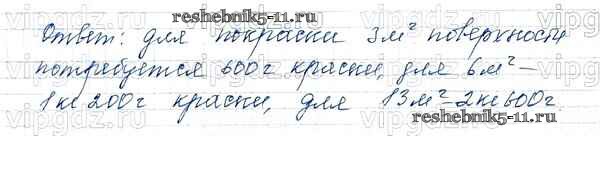 reshebnik5-11.ru
Ответ: для покраски 3м² поверхности
потребуется 600г краски, для 6м² –
1кг 200г краски, для 13м² – 2кг 600г.
reshebnik5-11.ru
vipgdz.ru